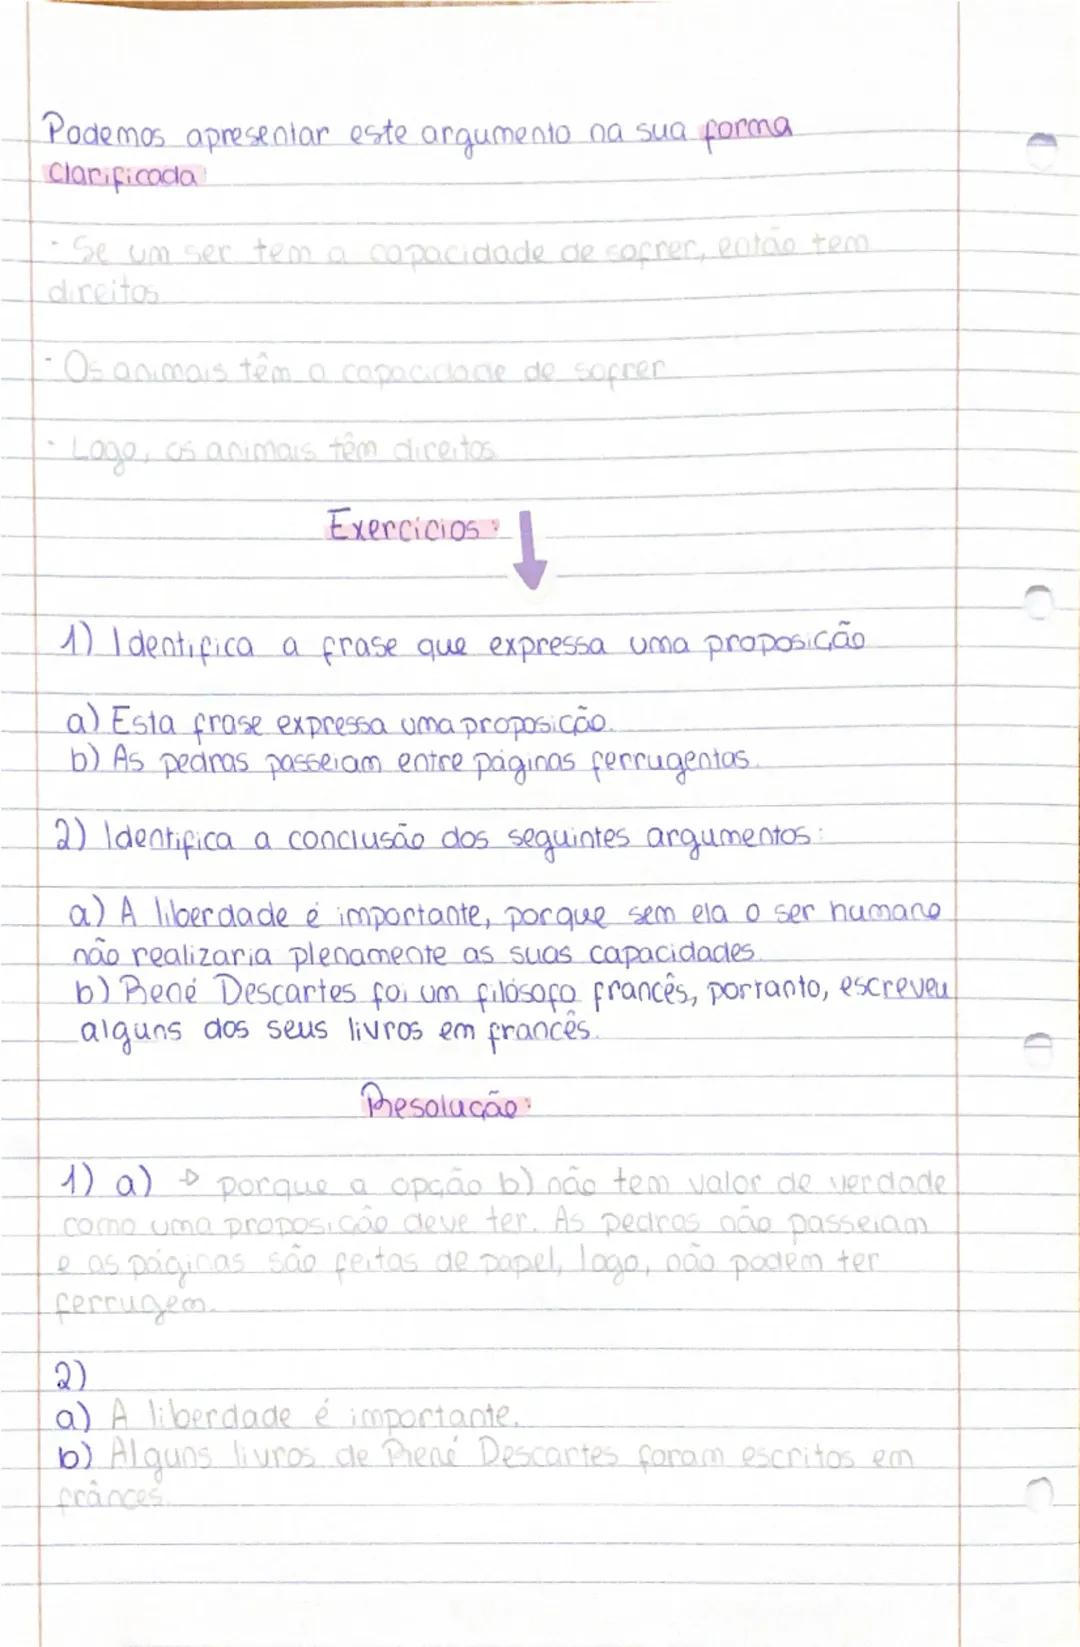 Podemos apresentar este argumento na sua forma
Clarificada:
· Se um ser tem a capacidade de sofrer, então tem
direitos
· Os animais têm a capacidade de sofrer
· Logo, os animais têm direitos
Exercícios:
1) Identifica a frase que expressa uma proposição
a) Esta frase expressa uma proposição.
b) As pedras passeiam entre páginas ferrugentas.
2) Identifica a conclusão dos seguintes argumentos:
a) A liberdade é importante, porque sem ela o ser humano
não realizaria plenamente as suas capacidades.
b) René Descartes foi um filósofo francês, portanto, escreveu
alguns dos seus livros em francês.
Resolução:
1) a) → porque a opção b) não tem valor de verdade
como uma proposição deve ter. As pedras não passeiam
e as páginas são feitas de papel, logo, não podem ter
ferrugem.
2)
a) A liberdade é importante.
b) Alguns livros de René Descartes foram escritos em
frânces.